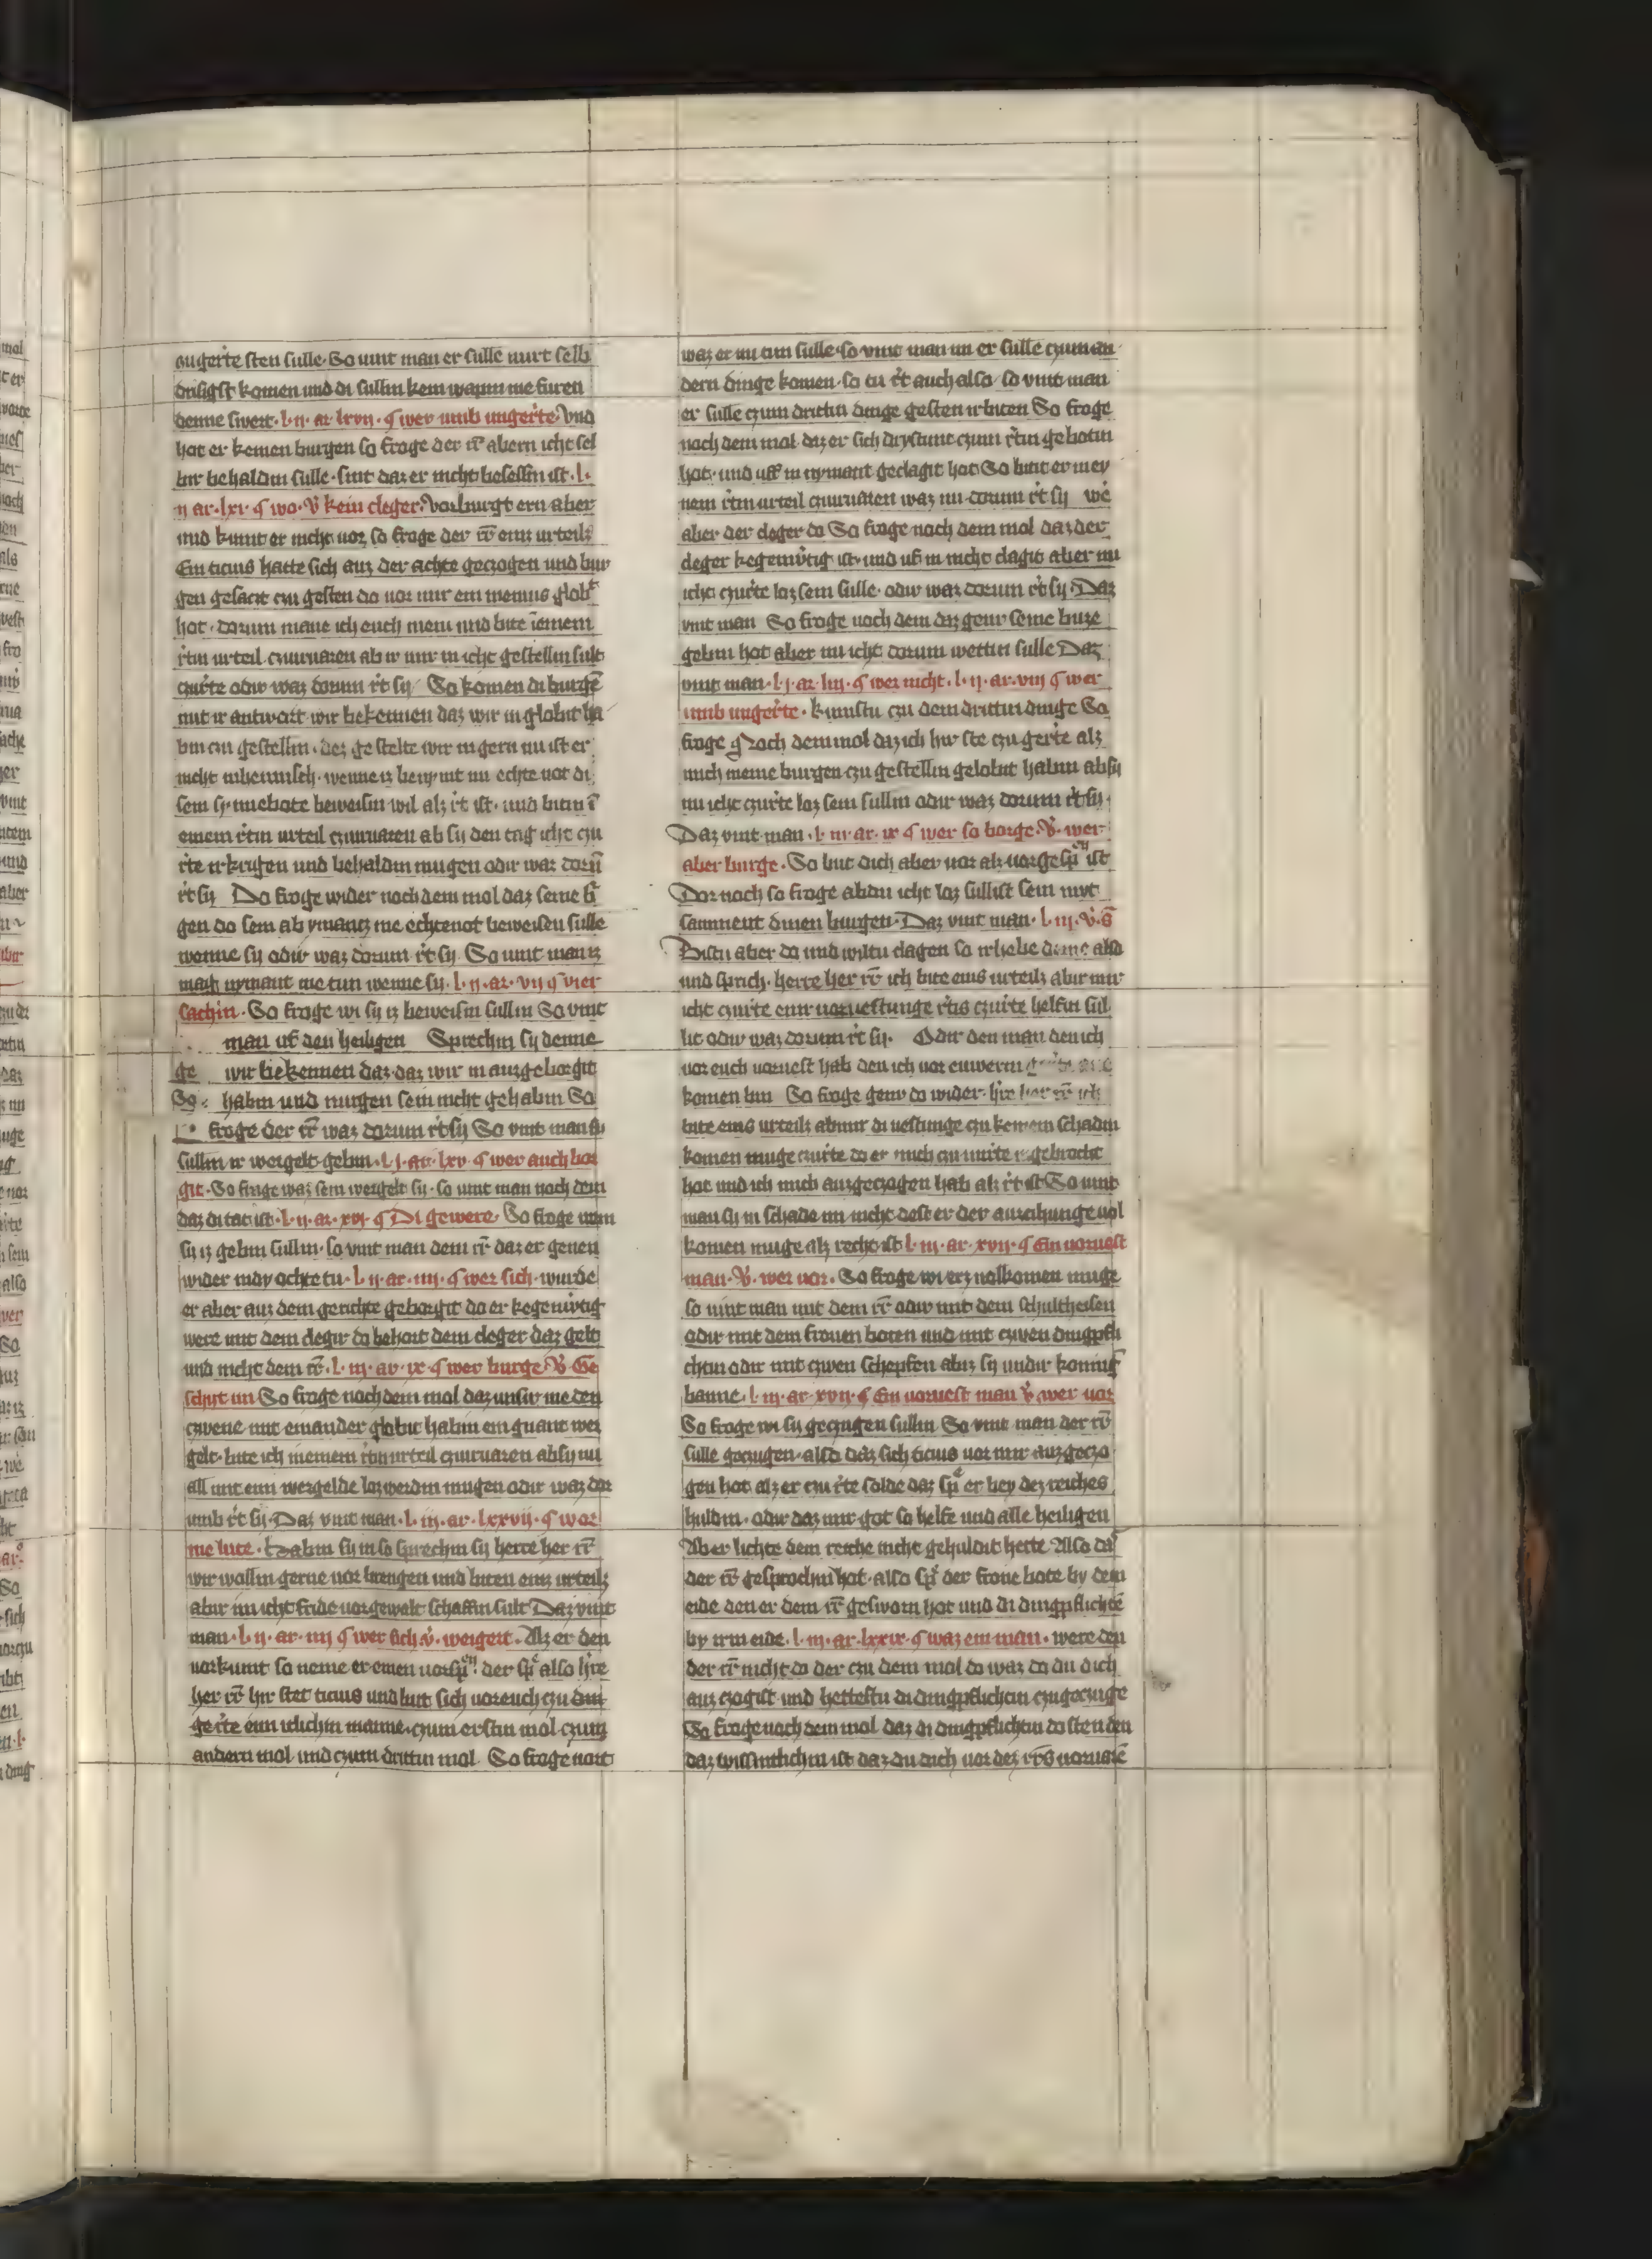 ougerte sten sulle. So vint man er sulle nurt selb
drisigst komen und di sullin kein wapin me furen
denne swert. l. ij. ar. lxvij. ¶ wer umb ungerte. Und
hot er keinen burgen so froge der rr abern icht sel
bir behaldin sulle. sint daz er nicht besessin ist. l.
ij ar. lxi. ¶ wo. V kein cleger. Vorburgt ern aber
und kumt er nicht vor, so froge der rr eins urteils
Ein ticius hatte sich auz der achte geczogen und bur
gen gesaczt czu gesten do vor mir ein mevius glob
hot. dorum mane ich euch mein und bite iemem
rtin urteil czuuruaren ab ir mir in icht gestellin sult
czurte odir waz dorum rt sy So komen di burgē
mit ir antwort wir bekennen daz wir in globit ha
bin czu gestellin. dez gestelte wir in gern nu ist er
nicht inheimisch. wenne iz benymt im echte not di
sein synnebote beweisin wil alz rt ist. und bitin ī
einem rtin urteil czuuruaren ab sy den tag icht czu
rte irkrigen und behaldin mugen odir waz dorū
rt sy Do froge wider noch dem mol daz seine b
gen do sein ab ymancz me echtenot beweisen sulle
wenne sy odir waz dorum rt sy. So vint man iz
mag nymant me tun wenne sy. l. ij. ar. vij ¶ vier
sachin. So froge wi sy iz beweisin sullin So vint
man uf den heiligen Sprechin sy denne
ge wir bekennen daz daz wir in auzgeborgit
So habin und mugen sein nicht gehabin So
froge der rr waz dorum rt sy So vint man sy
sullin ir weigelt gebin. l. j. ar. lxv. ¶ wer auch bor
git. So froge waz sein weigelt sy. so vint man noch dem
daz di tat ist. l. ij. ar. xvj. ¶ Di gewere. So froge wem
sy iz gebin sullin. so vint man dem rr daz er genen
wider in dy ochte tu. l. ij. ar. iiij. ¶ wer sich. wurde
er aber auz dem gerichte geborgit do er kegenwrtig
were mit dem clegir do behort dem cleger daz gelt
und nicht dem rr. l. iij. ar. ix. ¶ wer burge. V. Ge
schyt im So froge noch dem mol daz unsir me den
czwene mit einander globit habin ein quant wer
gelt. bite ich meinem rtin urteil czuuruaren ab sy nu
all mit eim wergelde loz werdin mugen odir waz dor
umb rt sy. Daz vint man. l. iij. ar. lxxvij. ¶ wor
me lute. Habin sy in so sprechin sy herre her rr
wir wollin gerne vor brengen und biten eins urteils
abir im icht fride vorgewalt schaffin sult Daz vint
man. l. ij. ar. iiij ¶ wer sich v. weigert. Alz er den
vorkumt so neme er einen vorsp der sp also hre
her rr hir stet ticius und biit sich vor euch czu din
gerte eim itlichim manne. czum erstin mol czum
andern mol und czum drittin mol. So froge nort
waz er nu tun sulle. so vint man im er sulle czum an
dern dinge komen. so tu rt auch also so vint man
er sulle czum drittin dinge gesten irbiten So froge
noch dem mol daz er sich drystunt czum rtin gebotin
hot. und uff in nymant geclagit hot So bitit er mey
nem rtin urteil czuuruaren waz nu dorum rt sy we
aber der cleger do So froge noch dem mol daz der
cleger kegenwrtig ist. und uf in nicht clagit aber nu
icht czurte loz sein sulle. odir waz dorum rt sy. Daz
vint man So froge noch dem daz genr seine buze
gebin hot aber nu icht dorum wettin sulle Daz
vint man. l. j. ar. liij. ¶ wer nicht. l. ij. ar. viij ¶ wer
umb ungerte. kumstu czu dem drittin dinge So
froge Noch dem mol daz ich hir ste czu gerte alz
mich meine burgen czu gestellin gelobit habin ab sy
nu icht czurte loz sein sullin odir waz dorum rt sy.
Daz vint man. l. iij. ar. ix ¶ wer so borge. V. wer
aber burge. So biit dich aber vor alz vorgesp ist
Dor noch so froge ab du icht loz sullist sein mit
samment dinen burgen. Daz vint man. l. iij. V. S
Bistu aber do und wiltu clagen so irhebe deine also
und sprich. herre her rr ich bite eins urteils abir mir
icht czurte einr voruestunge rtis czurte helfin sul
lit odir waz dorum rt sy. Odir den man den ich
vor euch voruest hab den ich vor euwerm
komen bin So froge genr do wider. hre her rr ich
bite eins urteils ab mir di vestunge czu keinem schadin
komen muge czurte do er mich czu nurte gebrocht
hot und ich mich auzgeczogen hab alz rt ist So vint
man sy in schade im nicht dest er der auzcihunge vol
komen muge alz recht ist l. iij. ar. xvij. ¶ Ein voruest
man. V. wer vor. So froge wi erz volkomen muge
so vint man mit dem rr odir mit dem schultheisen
odir mit dem fronen boten und mit czwen dingpfli
chtin odir mit czwen schepfen abiz sy undir konnig
banne. l. iij. ar. xvij. ¶ Ein voruest man V. wer vor
So froge wi sy geczugen sullin. So vint man der rr
sulle geczugen. also daz sich ticius vor mir auzgeczo
gen hot alz er czu rte solde daz sp er bey dez reiches
huldin. odir daz mir got so helfe und alle heiligen
Aber lichte dem reiche nicht gehuldit hette Also da
der rr gesprochin hot. also sp der frone bote by dem
eide den er dem rr gesworn hot und di dingpflichtē
by irm eide. l. iij. ar. lxxix. ¶ waz ein man. were den
der rr nicht do der czu dem mol do waz do du dich
auz czogist und hettestu di dingpflichtin czugeczuge
So froge noch dem mol daz di dingpflichtin do sten den
daz wissintlichin ist daz du dich vor dez rrs voruarē